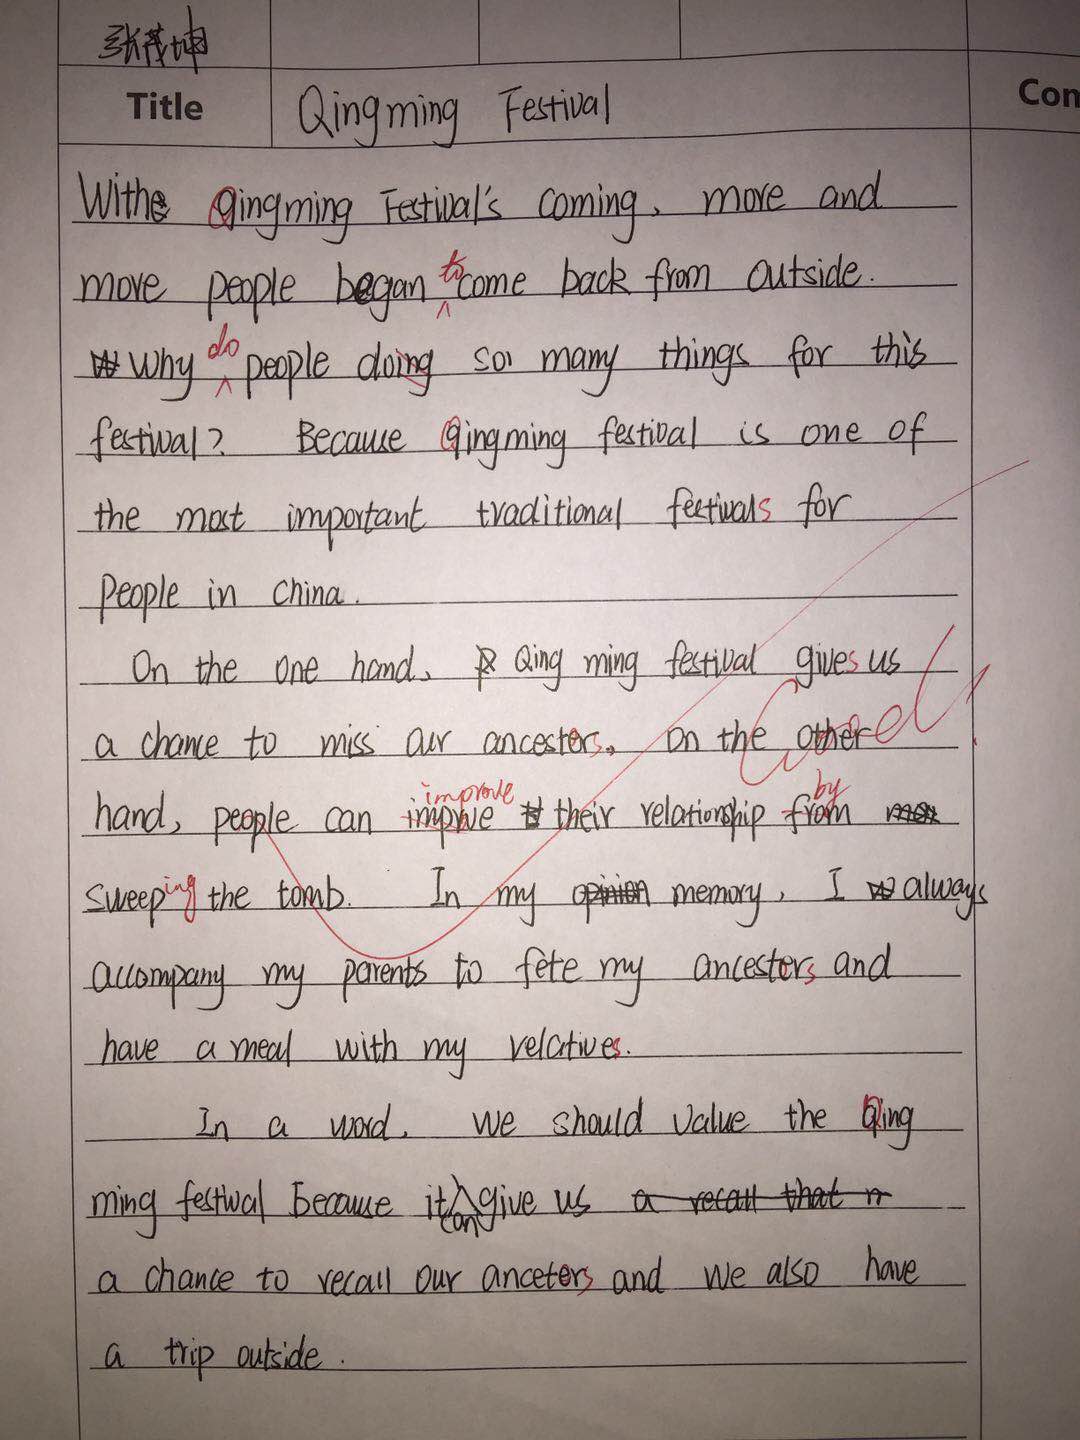 张茂坤
Title Qingming Festival Com
Withe Qingming Festival's coming, more and
more people began to come back from outside.
Why do people doing so many things for this
festival? Because Qingming festival is one of
the most important traditional festivals for
People in China.
On the one hand, Qing ming festival gives us
a chance to miss our ancestors, on the other
Good!
hand, people can improve their relationship from by
sweeping the tomb. In my opinion memory, I always
accompany my parents to fete my ancestors and
have a meal with my relatives.
In a word, we should value the Qing
ming festival because it can give us a recall that
a chance to recall our anceters and we also have
a trip outside.